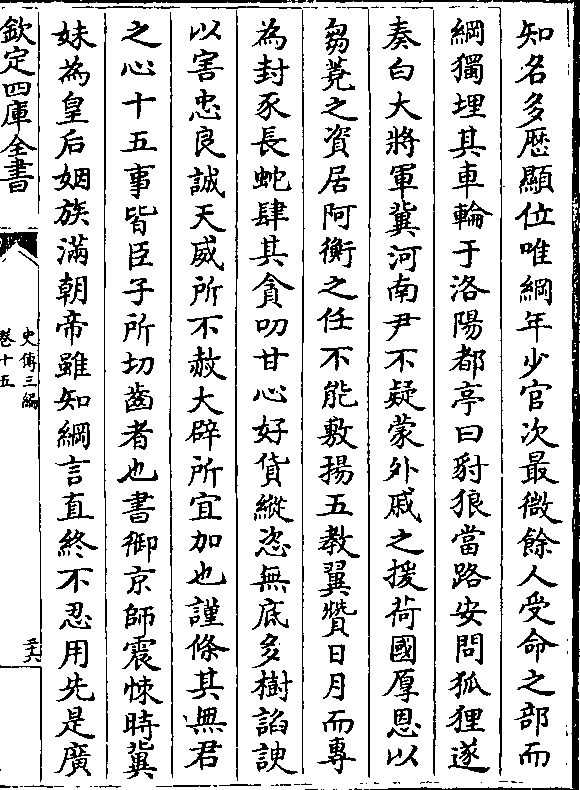 知名多歴顯位唯綱年少官次最微餘人受命之部而
綱獨埋其車輪于洛陽都亭曰豺狼當路安問狐狸遂
奏白大將軍冀河南尹不疑蒙外戚之援荷國厚恩以
芻蕘之資居阿衡之任不能敷揚五教翼贊日月而專
為封豕長蛇肆其貪叨甘心好貨縱恣無底多樹諂諛
以害忠良誠天威所不赦大辟所宜加也謹條其無君
之心十五事皆臣子所切齒者也書御京師震悚時冀
妹為皇后姻族滿朝帝雖知綱言直終不忍用先是廣
欽定四庫全書
史傳三編
卷十五
三六